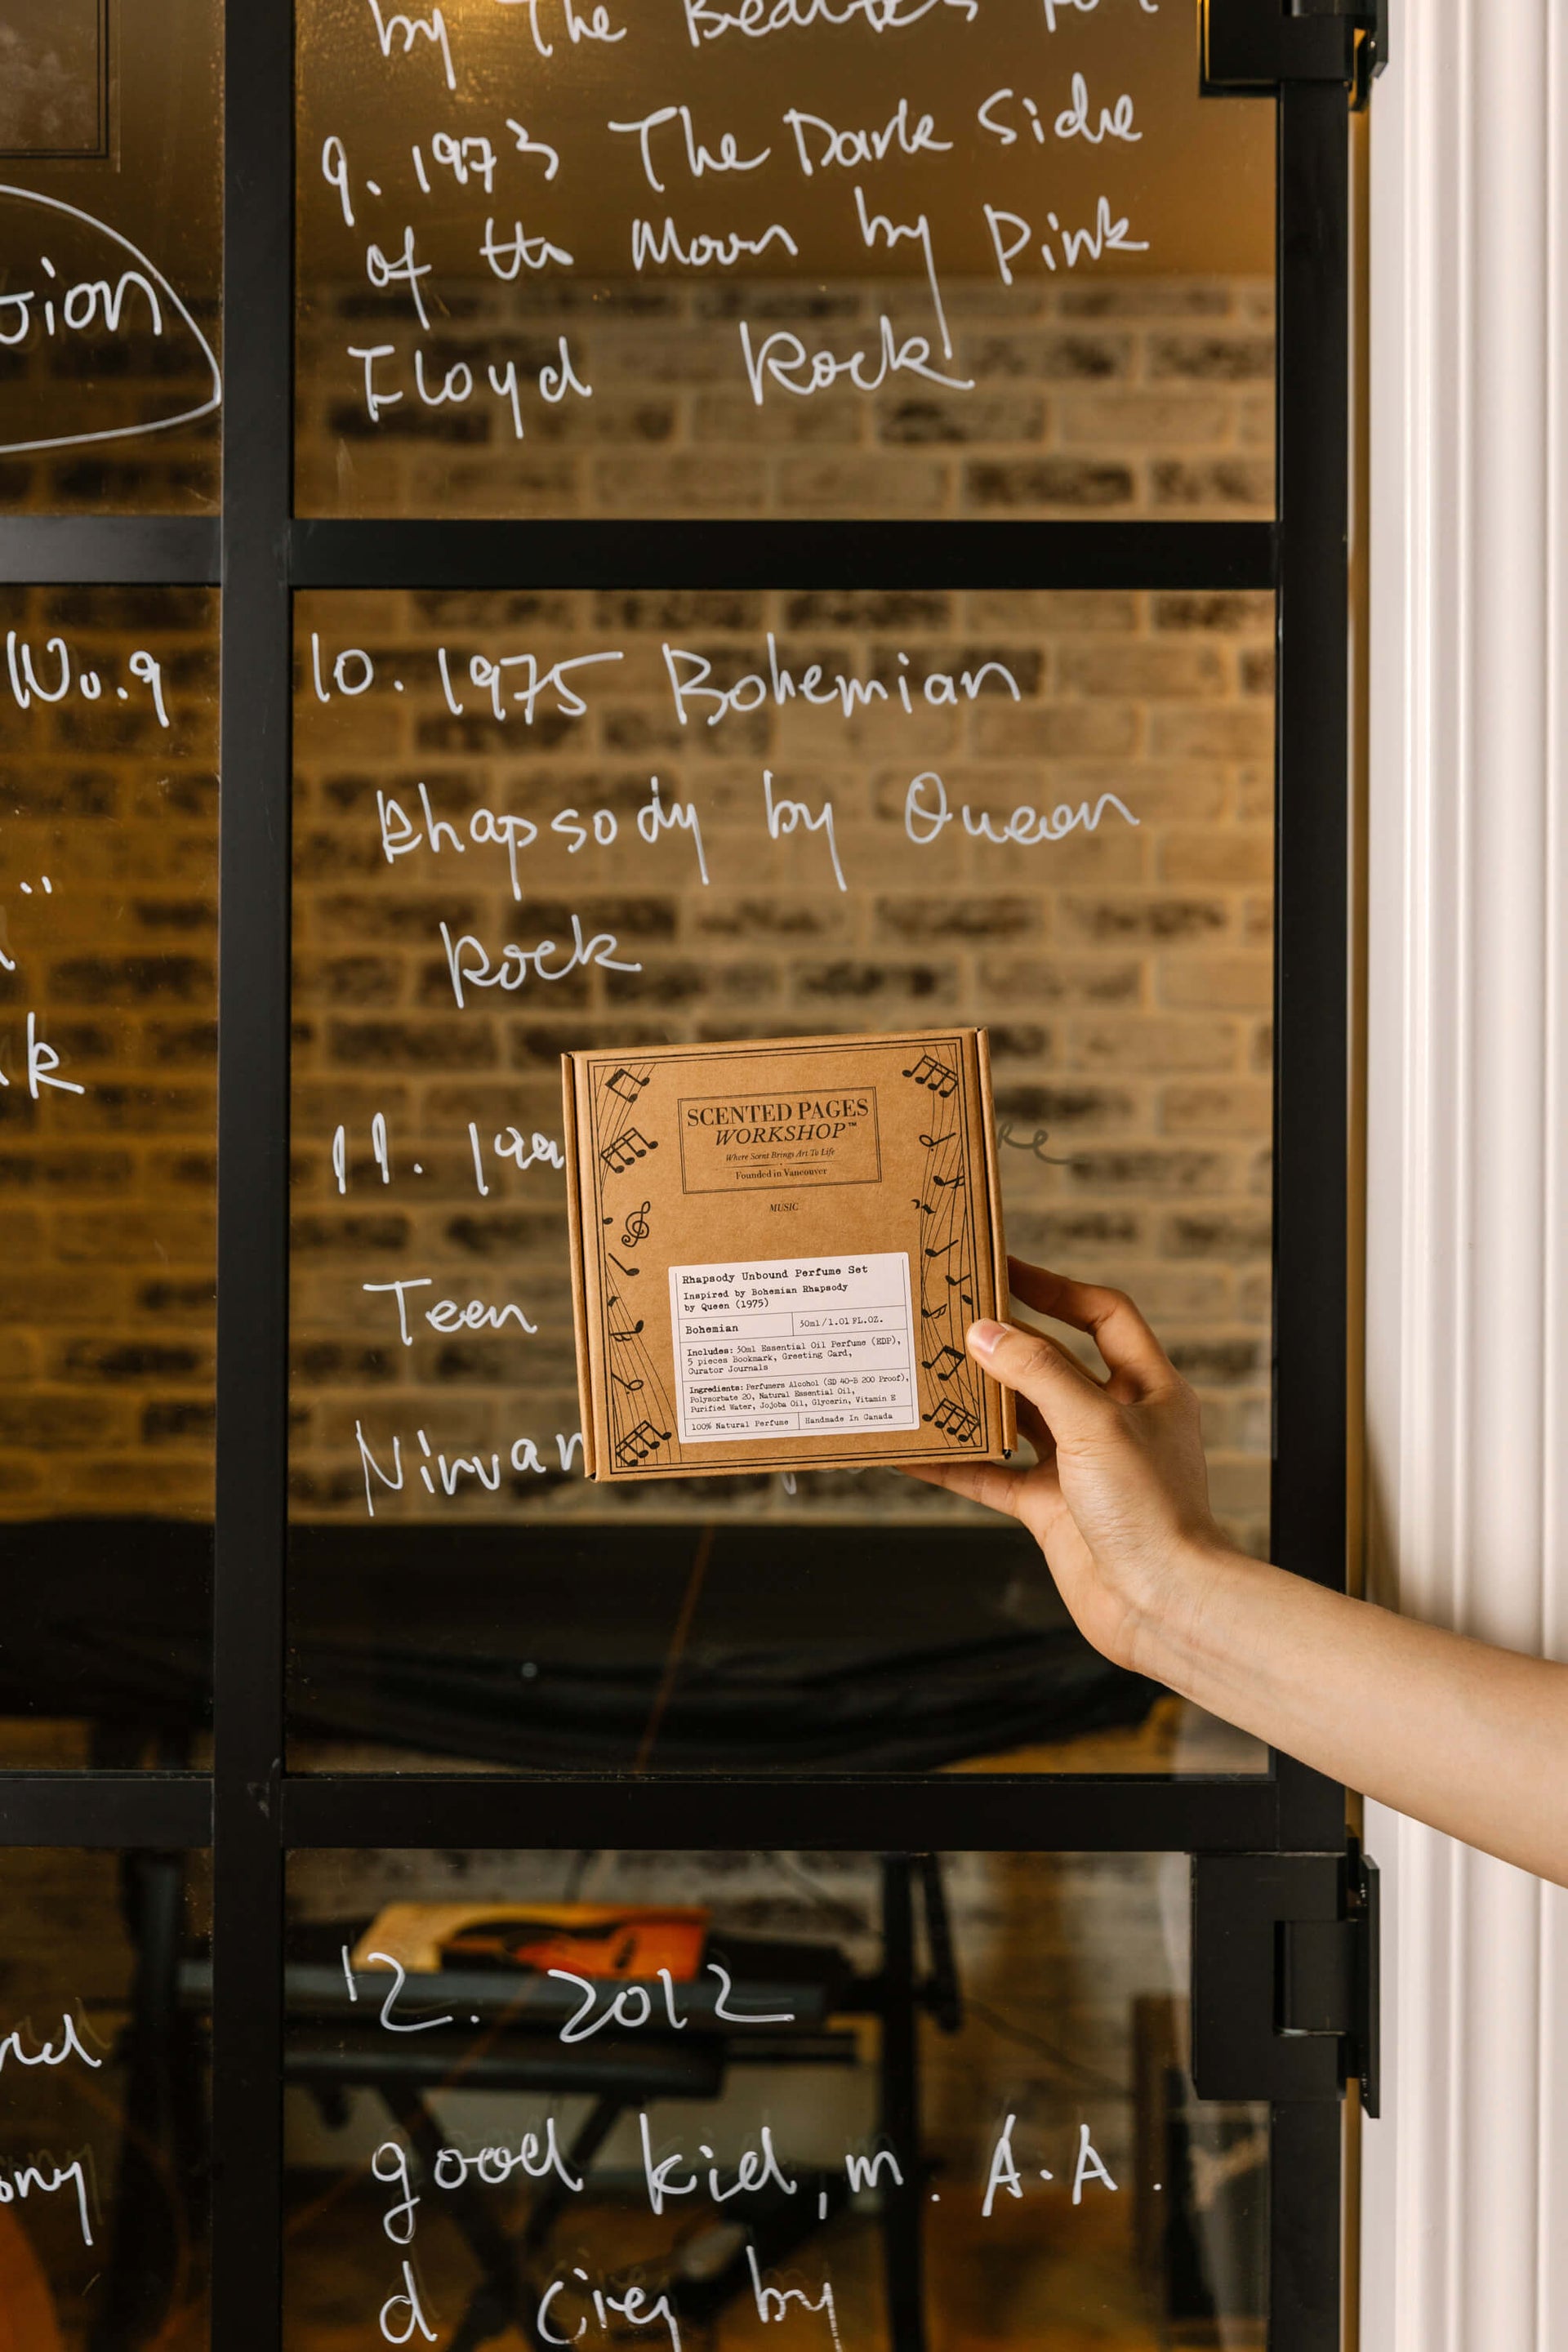 by The Beatles
9. 1973 The Dark Side
of the Moon by Pink
Floyd Rock
No.9
10. 1975 Bohemian
Rhapsody by Queen
Rock
11.
Teen
SCENTED PAGES
WORKSHOP™
Where Scent Brings Art To Life
Founded in Vancouver
MUSIC
Rhapsody Unbound Perfume Set
Inspired by Bohemian Rhapsody
by Queen (1975)
Bohemian 30ml/1.01 FL.OZ.
Includes: 30ml Essential Oil Perfume (EDP),
5 pieces Bookmark, Greeting Card,
Curator Journals
Ingredients: Perfumers Alcohol (SD 40-B 200 Proof),
Polysorbate 20, Natural Essential Oil,
Purified Water, Jojoba Oil, Glycerin, Vitamin E
100% Natural Perfume Handmade In Canada
Nirvan
12. 2012
good kid, m.A.A.
d city by